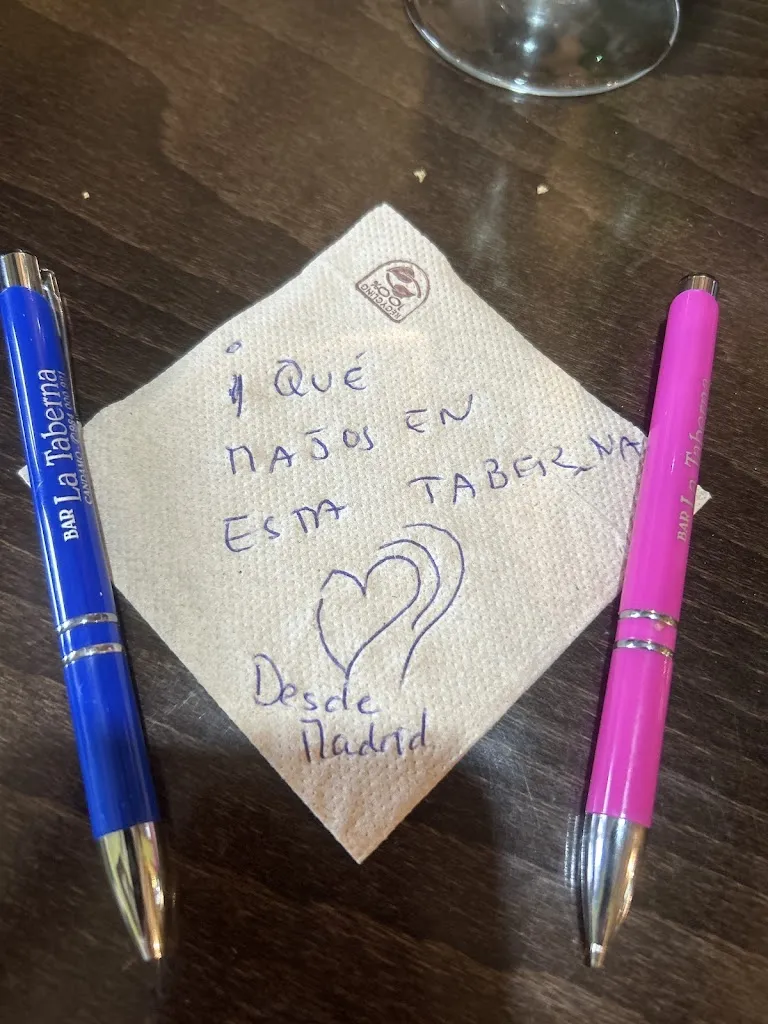 ¡ QUÉ
MAJOS EN
ESTA TABERNA
Desde
Madrid
BAR La Taberna
BAR La Taberna
RECYCLING
100%